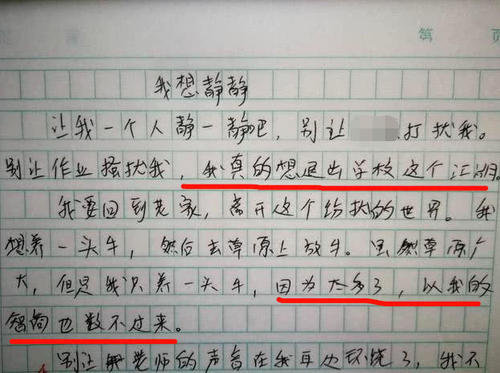 第 页
我想静静
让我一个人静一静吧，别让 打扰我。
别让作业骚扰我，我真的想退出学校这个江湖。
我要回到老家，离开这个纷扰的世界。我
想养一头牛，然后去草原上放牛。虽然草原广
大，但是我只养一头牛，因为太多了，以我的
智商也数不过来。
别让老师的声音在我耳边环绕了，我不